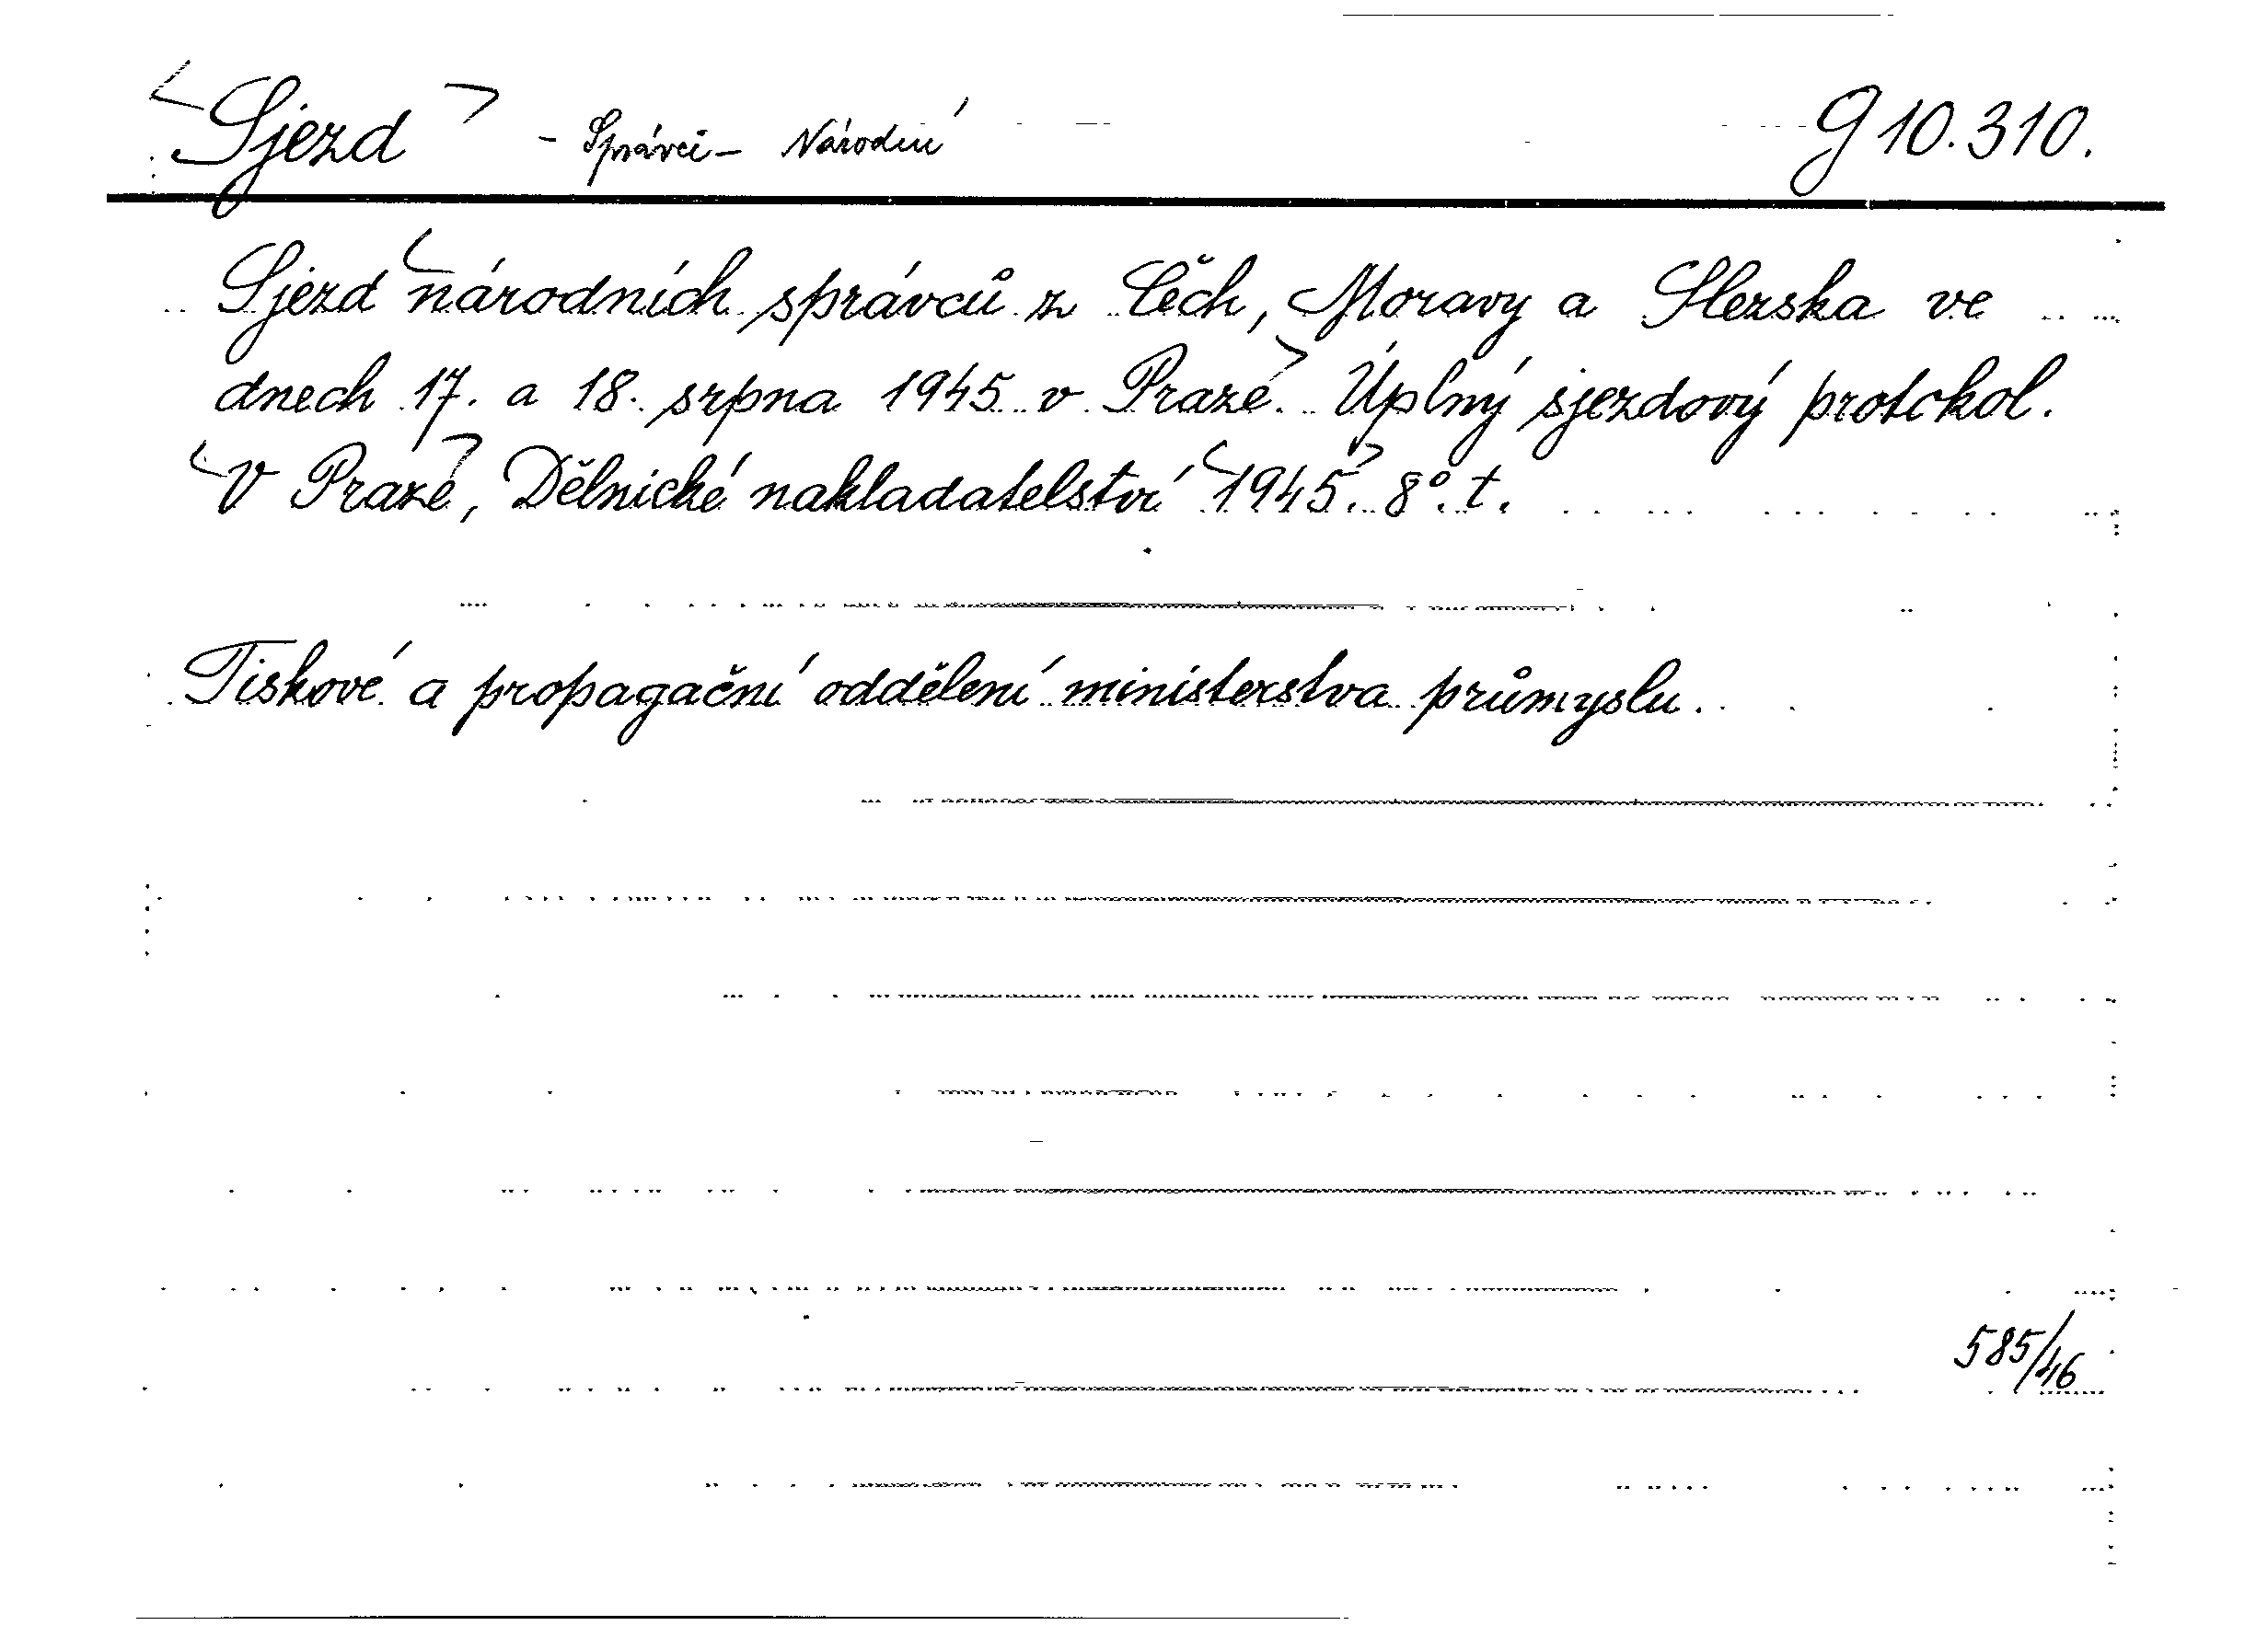 <Sjezd> - Správci - Národní G 10.310.
Sjezd <národních správců z Čech, Moravy a Slezska ve
dnech 17. a 18. srpna 1945 v Praze>. Úplný sjezdový protokol.
<V Praze>, Dělnické nakladatelství <1945.> 8°. t.
Tiskové a propagační oddělení ministerstva průmyslu.
585/46